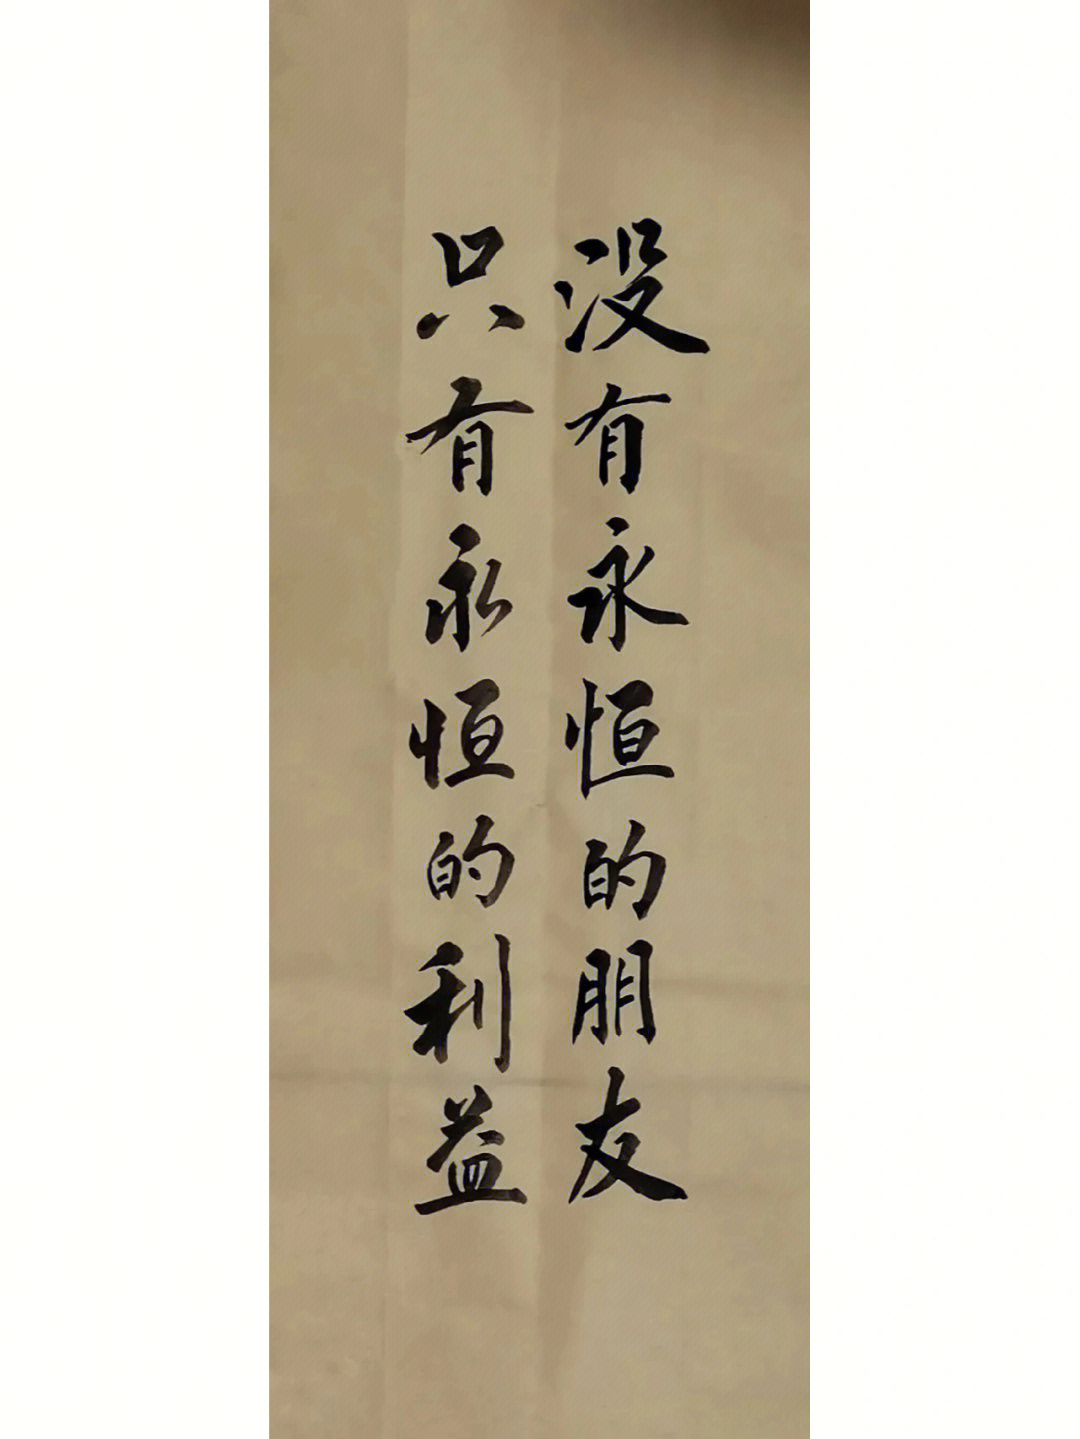 没有永恒的朋友
只有永恒的利益